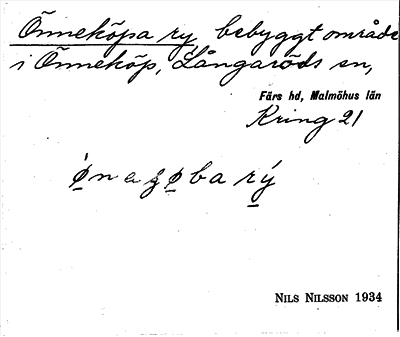 Önneköpa ry, bebyggt område
i Önneköp, Långaröds sn,
Färs hd, Malmöhus län
Kring 21
NILS NILSSON 1934